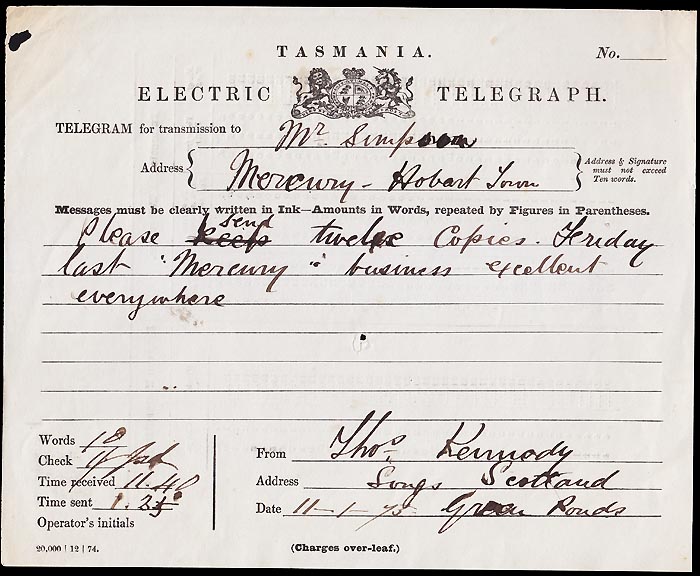 TASMANIA.
No.
ELECTRIC TELEGRAPH.
TELEGRAM for transmission to Mr. Simpson
Address Mercury - Hobart Town
Address & Signature
must not exceed
Ten words.
Messages must be clearly written in Ink—Amounts in Words, repeated by Figures in Parentheses.
Please keep send twelve Copies. Friday
last "Mercury" business excellent
everywhere
Words 10
Check
Time received 11.40
Time sent 1.25
Operator's initials
From Thos. Kennedy
Address Songs Scotland
Date 11-1-75 Green Ponds
20,000 | 12 | 74.
(Charges over-leaf.)